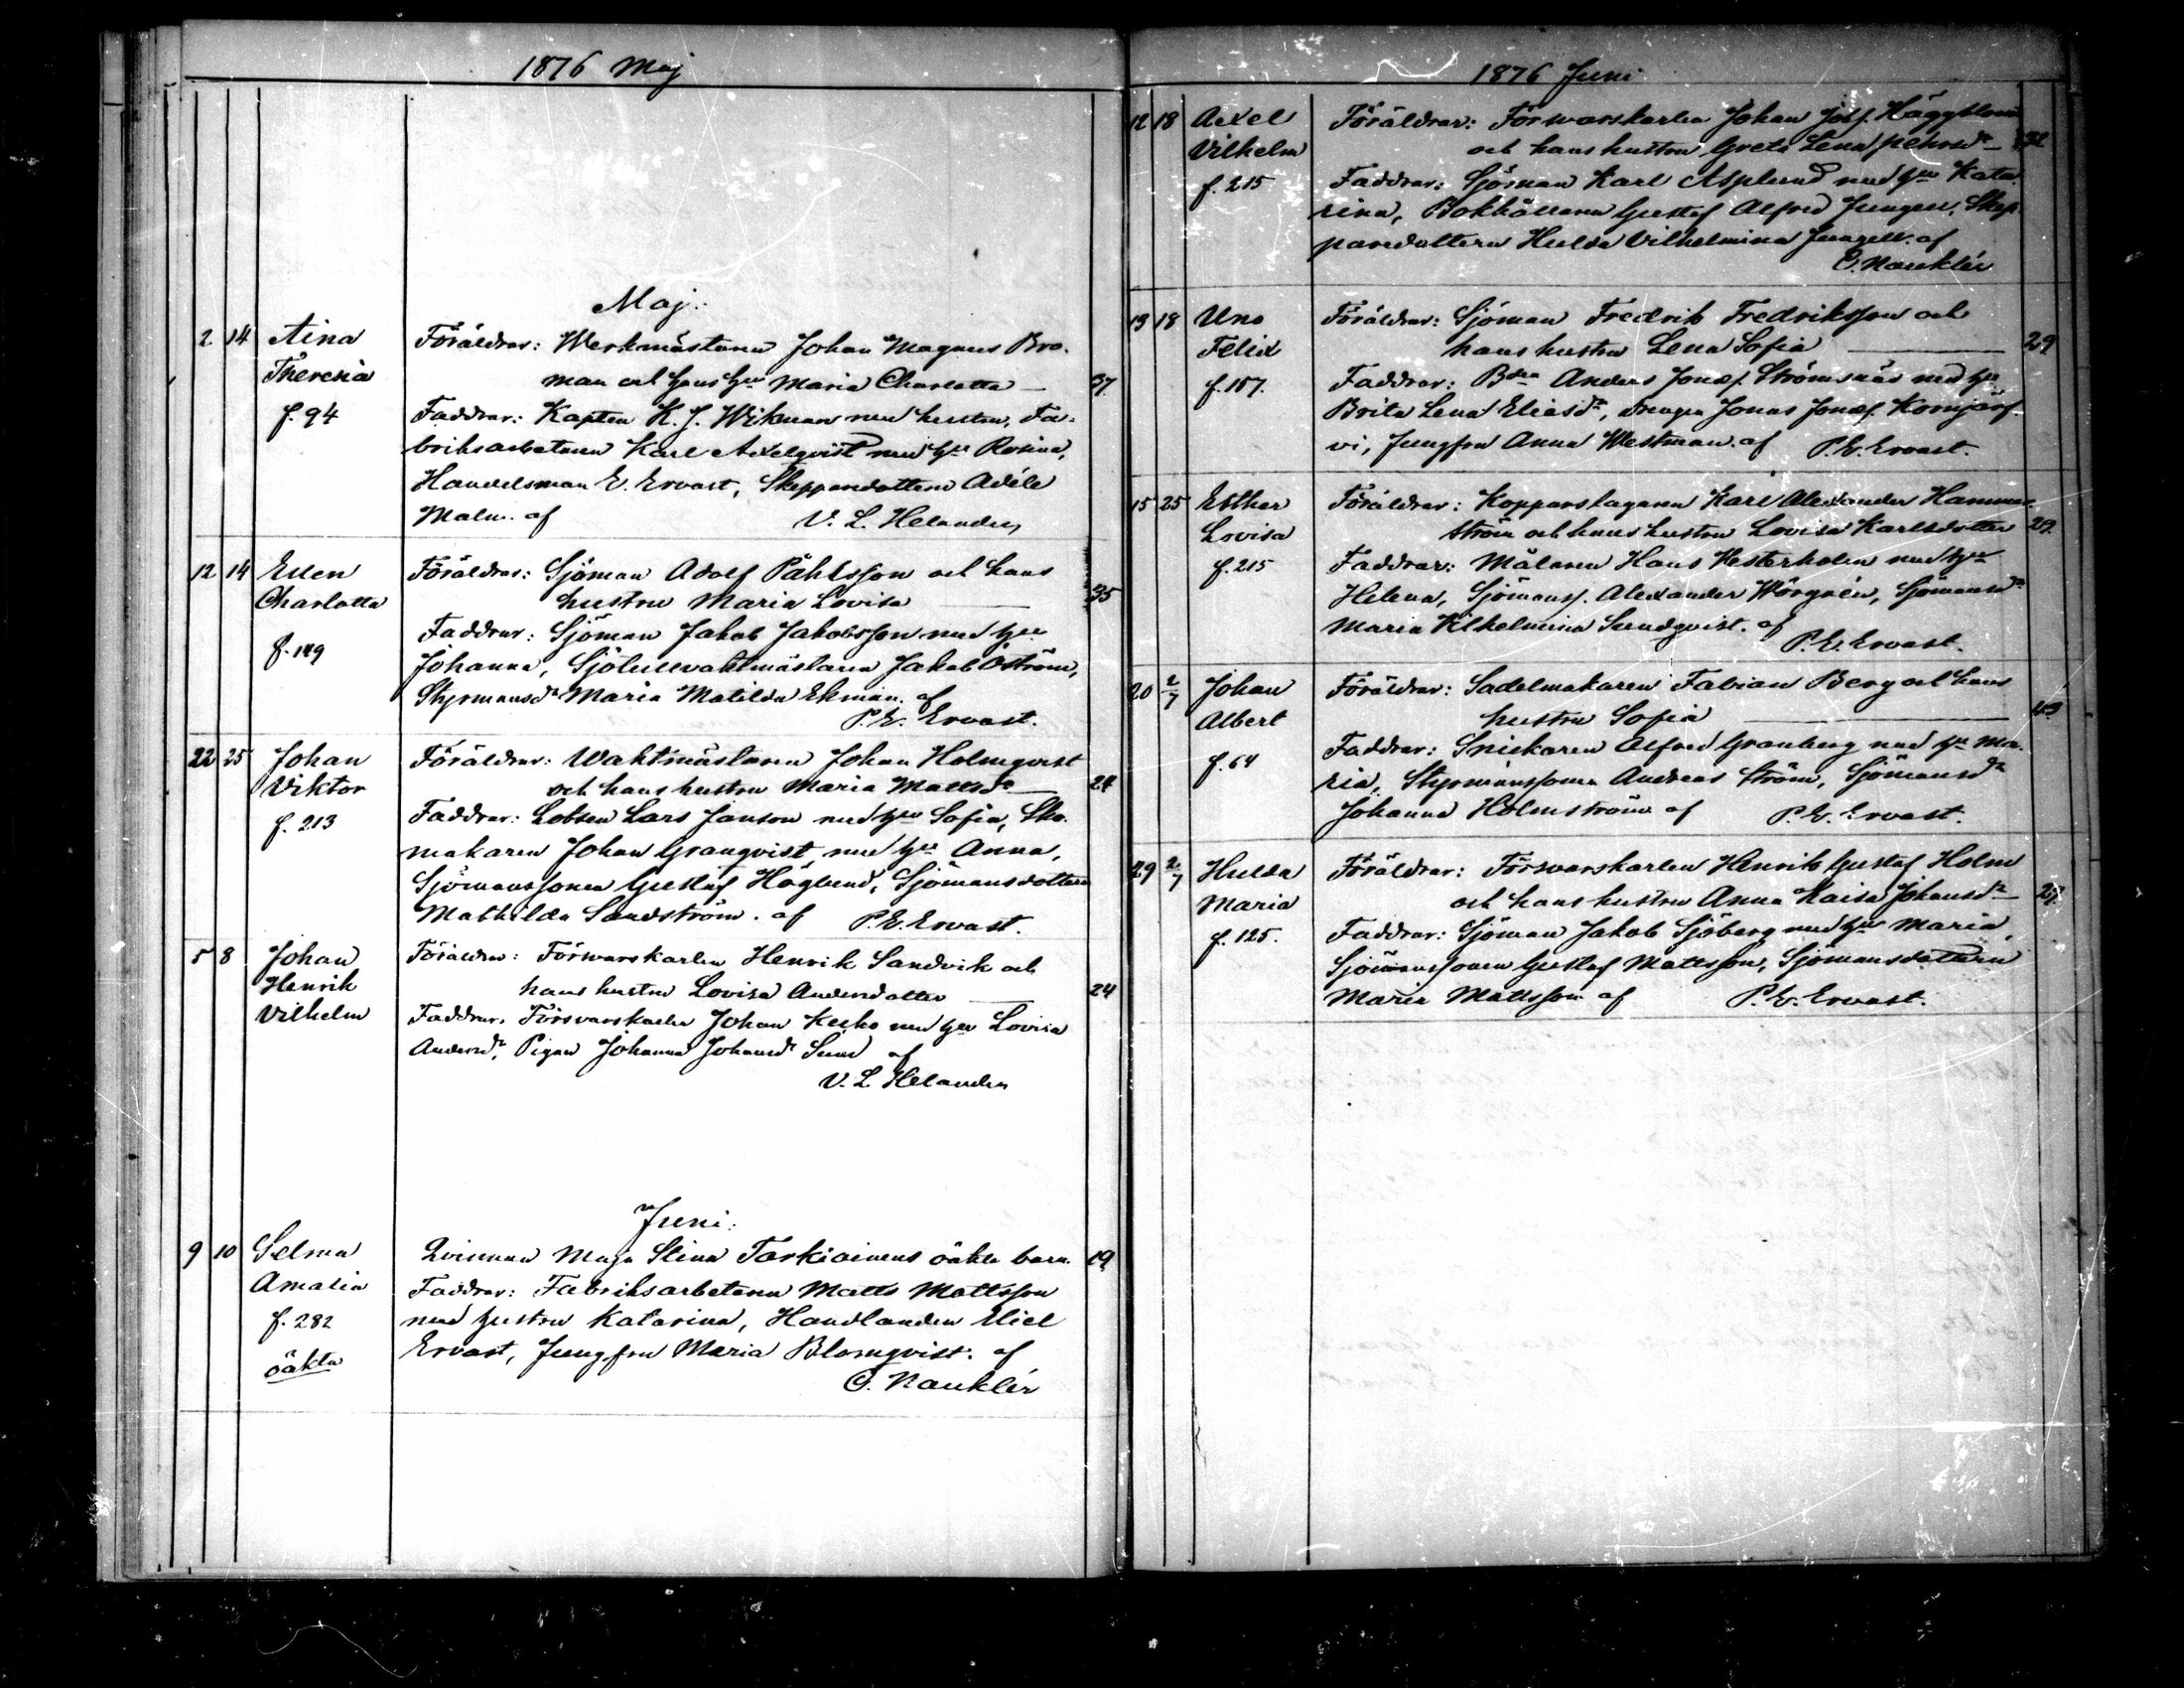 1876 Maj
Maj.
2 14 Aina Föräldrar: Werkmästaren Johan Magnus Bro-
Theresia man och hans hu Maria Charlotta — 37.
f. 94 Faddrar: Kapten K. J. Wikman med hustru, Fa-
briksarbetaren Karl Axelqvist med hu Rosina,
Handelsman E. Ervast, Skepparedottern Adéle
Malm. af V. L. Helander
12 14 Ellen Föräldrar: Sjöman Adolf Påhlsson och hans
Charlotta hustru Maria Lovisa — 35
f. 149 Faddrar: Sjöman Jakob Jakobsson med hu
Johanna, Sjötullvaktmästaren Jakob Öström,
Styrmansdr Maria Matilda Ekman. af
P. E. Ervast.
22 25 Johan Föräldrar: Waktmästaren Johan Holmqvist
Viktor och hans hustru Maria Mattsdr — 24
f. 213 Faddrar: Lotsen Lars Janson med hu Sofia, Sko-
makaren Johan Granqvist med hu Anna,
Sjömanssonen Gustaf Höglund, Sjömansdottern
Mathilda Sandström. af P. E. Ervast.
5 8 Johan Föräldrar: Förswarskarlen Henrik Sandvik och
Henrik hans hustru Lovisa Andersdotter — 24
Vilhelm Faddrar: Försvarskarlen Johan Keiho med hu Lovisa
Andersdr, Pigan Johanna Johansdr Sund af
V. L. Helander
Juni.
9 10 Selma Qvinnan Maja Stina Tarkiainens oäkta barn. 19
Amalia Faddrar: Fabriksarbetaren Matts Mattsson
f. 282 med hustru Katarina, Handlanden Eliel
oäkta Ervast, Jungfru Maria Blomqvist. af
G. Nauklér
1876 Juni
12 18 Axel Föräldrar: Förswarskarlen Johan Josf. Häggblom
Vilhelm och hans hustru Greta Lena Pehrsdr —
f. 215 Faddrar: Sjöman Karl Asplund med hu Kata-
rina, Bokhållaren Gustaf Alfred Jungell, Skep-
paredottern Hulda Vilhelmina Jungell. af
G. Nauklér
13 18 Uno Föräldrar: Sjöman Fredrik Fredriksson och
Felix hans hustru Lena Sofia — 29
f. 157. Faddrar: Bden Anders Jonsf. Strömsnäs med hu
Brita Lena Eliasdr, drengen Jonas Jonsf. Kornjärf-
vi, Jungfru Anna Westman. af P. E. Ervast.
15 25 Esther Föräldrar: Kopparslagaren Karl Alexander Hammar-
Lovisa ström och hans hustru Lovisa Karlsdotter 29.
f. 215 Faddrar: Målaren Hans Westerholm med hu
Helena, Sjömanss. Alexander Wörgrén, Sjömansdr
Maria Vilhelmina Sundqvist. af
P. E. Ervast.
20 2/7 Johan Föräldrar: Sadelmakaren Fabian Berg och hans
Albert hustru Sofia — 43
f. 64 Faddrar: Snickaren Alfred Granberg med hu Ma-
ria, Styrmanssonen Andreas Ström, Sjömansdr
Johanna Holmström af P. E. Ervast.
29 2/7 Hulda Föräldrar: Försvarskarlen Henrik Gustaf Holm
Maria och hans hustru Anna Kaisa Johansdr —
f. 125. Faddrar: Sjöman Jakob Sjöberg med hu Maria,
Sjömanssonen Gustaf Mattsson, Sjömansdottern
Maria Mattsson af P. E. Ervast.